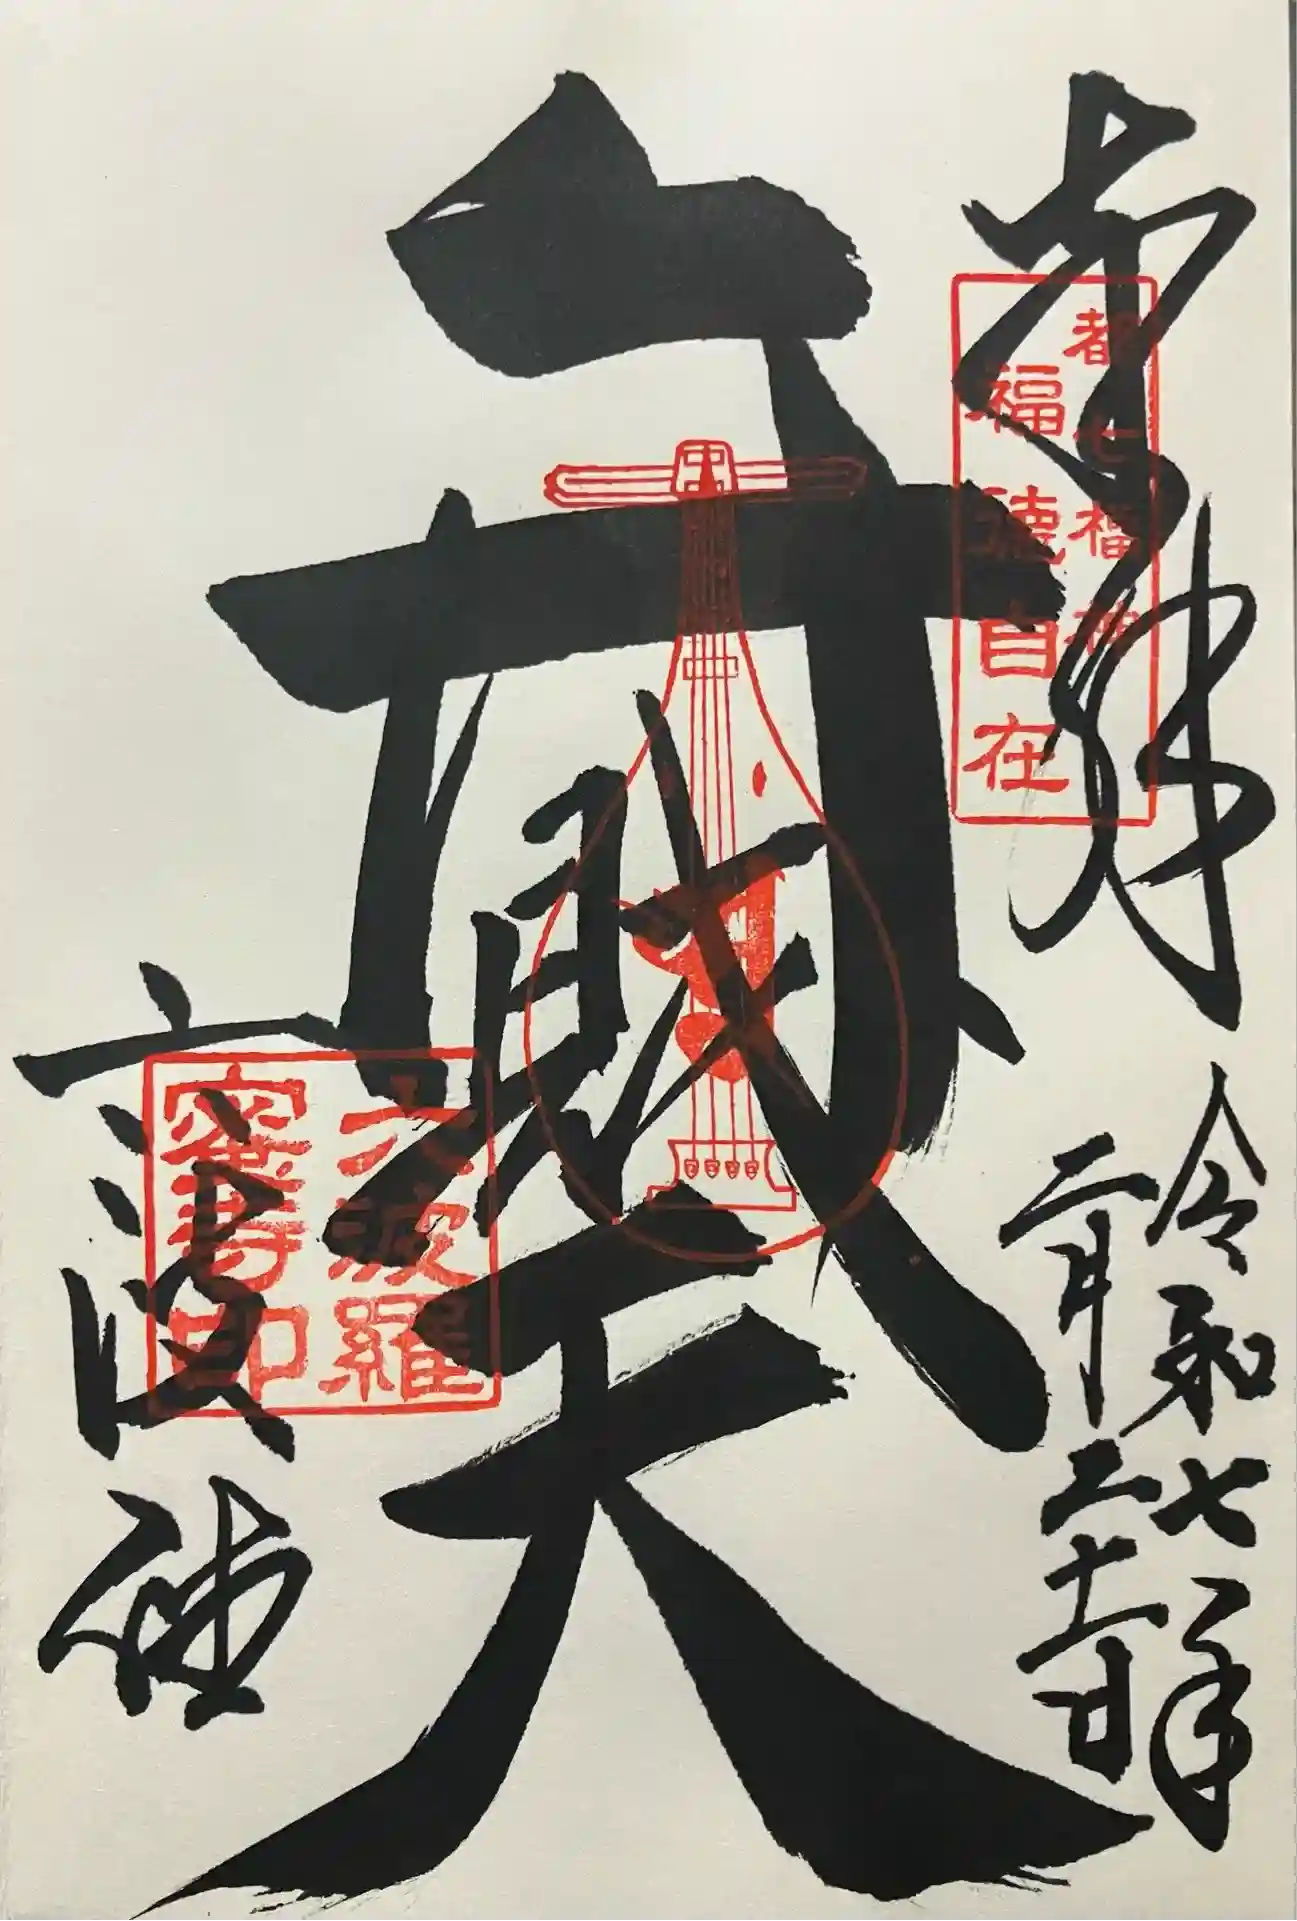 奉拝
都七福神
福徳自在
令和七年
二月二十一日
財天
六波羅
蜜寺印
六波